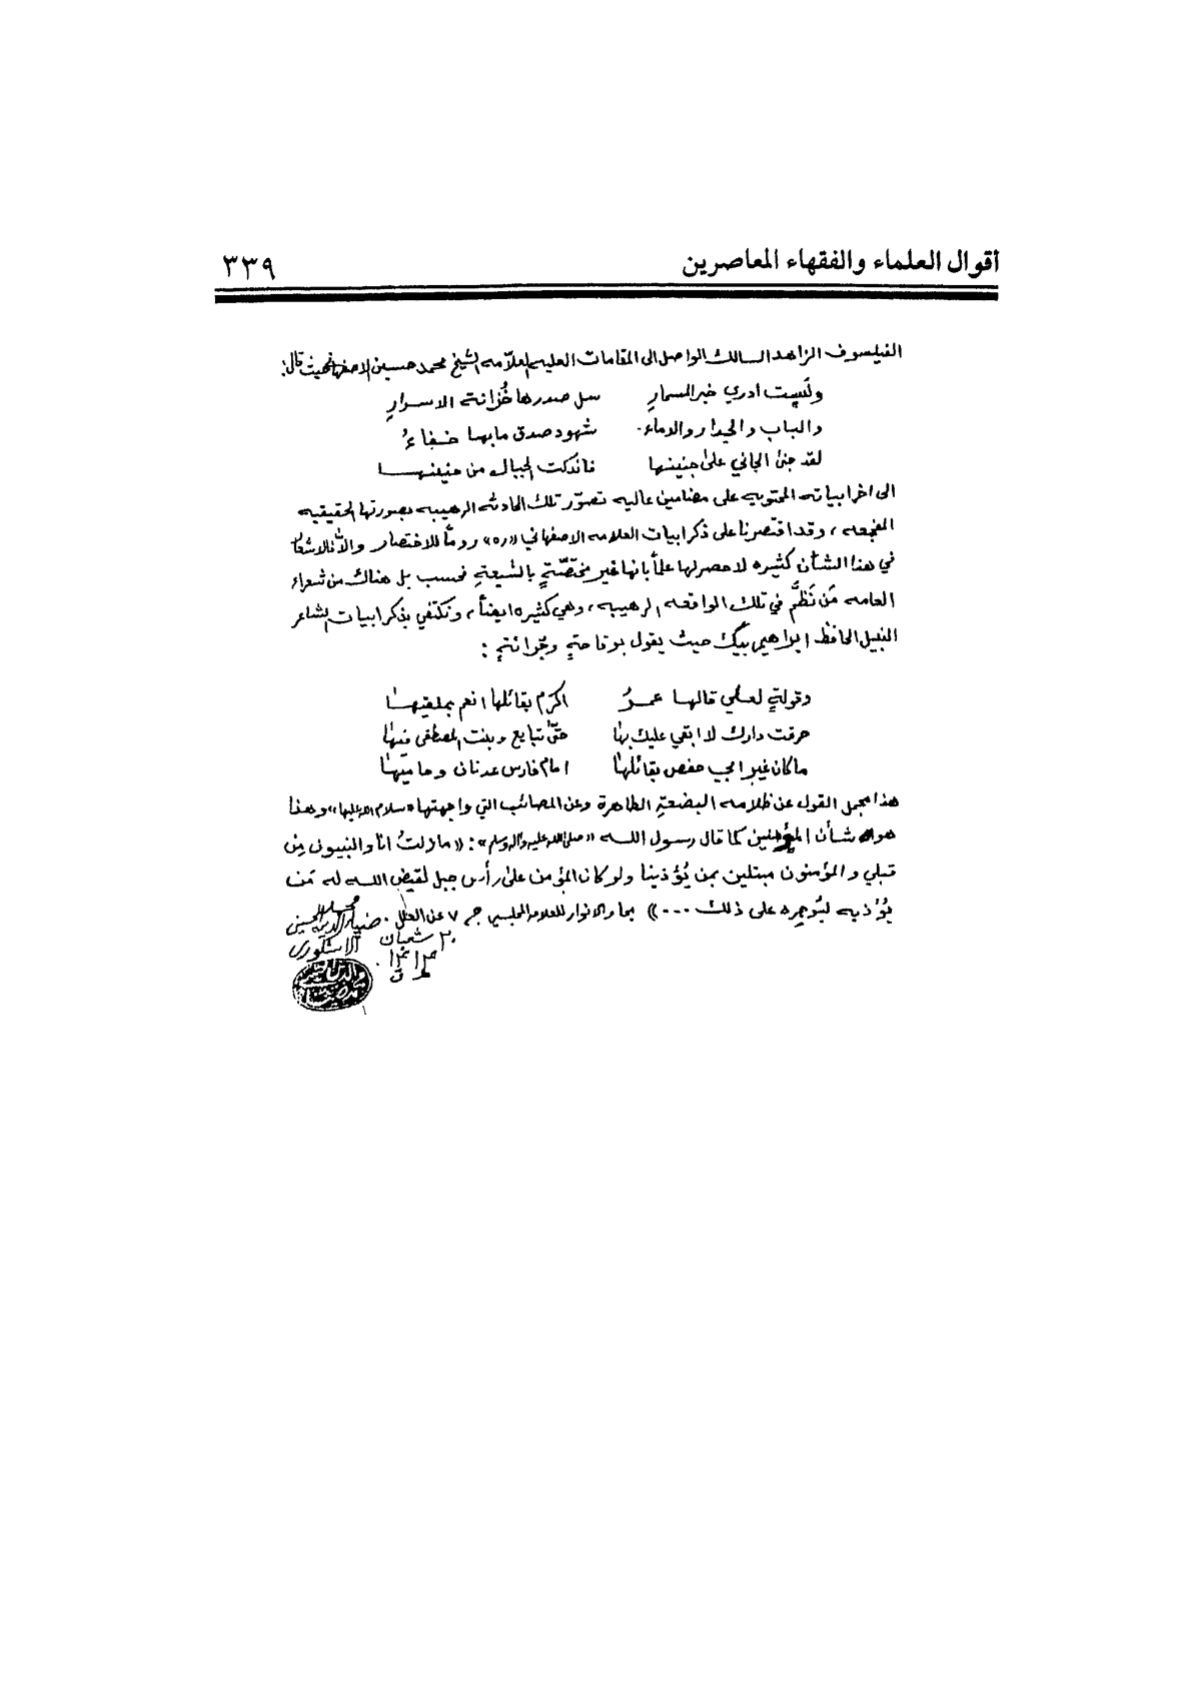 أقوال العلماء والفقهاء المعاصرين ٣٣٩
الفيلسوف الزاهد السالك الواصل الى المقامات العليه العلاّمه الشيخ محمد حسين الاصفهاني حيث قال:
ولَست ادري خبر المسمارِ سل صدرها خُزانة الاسرارِ
والباب والجدار والدماء شهود صدق مابها خفاءُ
لقد جنىٰ الجاني علىٰ جنينها فاندكت الجبال من حنينها
الى اخر ابياته المحتويه على مضامين عاليه تصوّر تلك الحادثه الرهيبه بصورتها الحقيقيه
المفجعه، وقد اقتصرنا على ذكر ابيات العلامه الاصفهاني «ره» روماً للاختصار والاّ فالاشعار
في هذا الشأن كثيره لا حصر لها علماً بانها غير مختصّةٍ بالشيعةِ فحسب بل هناك من شعراء
العامه مَن نَظَّم في تلك الواقعه الرهيبه، وهي كثيره ايضاً، ونكتفي بذكر ابيات الشاعر
النبيل الحافظ ابراهيم بيگ حيث يقول بوقاحتهِ وجُرائتهِ:
وقولةٍ لعلي قالها عمرُ اكرم بقائلها انعم بملقيها
حرقت دارك لا ابقي عليك بها حتّىٰ تبايع وبنت المصطفى فيها
ماكان غير ابي حفص بقائلها امام فارس عدنان وحاميها
هذا مجمل القول عن ظلامه البضعةِ الطاهرة وعن المصائب التي واجهتها «سلام الله عليها» وهذا
هو شأن المؤمنين كما قال رسول الله «صلى الله عليه وآله وسلم»: «مازلتُ انا والنبيون مِن
قبلي والمؤمنون مبتلين بمن يُؤذينا ولو كان المؤمن علىٰ رأس جبل لقيض الله له مَن
يُؤذيه ليُوجره على ذلك ...» بحار الانوار للعلامه المجلسي ج ٧ عن العلل.
محمد ضياء الدين الحسيني
الاشكوري
٢٠ شعبان
ق